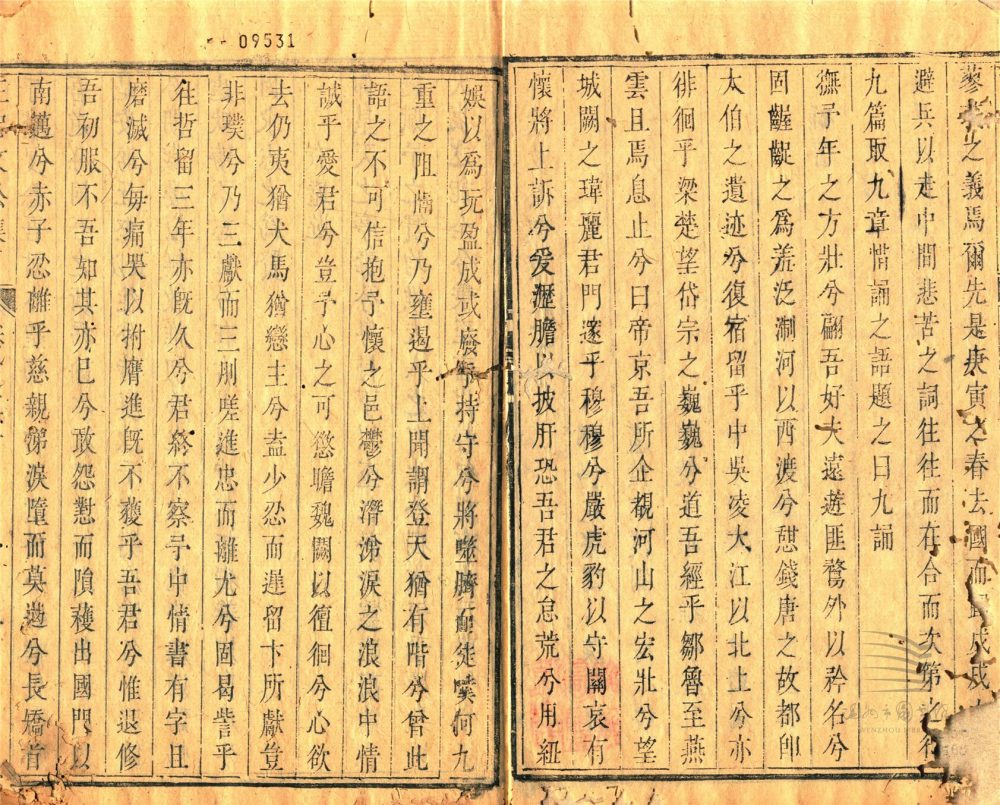 之義焉爾先是庚寅之春去國而歸
避兵以走中間悲苦之詞往往而在合而次第之得
九篇取九章惜誦之語題之曰九誦
撫予年之方壯兮翩吾好夫遠遊匪騖外以矜名兮
固齷齪之爲羞泛淛河以西渡兮憩錢唐之故都卽
太伯之遺迹兮復宿留乎中吳凌大江以北上兮亦
徘徊乎梁楚望岱宗之巍巍兮道吾經乎鄒魯至燕
雲且焉息止兮曰帝京吾所企覩河山之宏壯兮望
城闕之瑋麗君門邃乎穆穆兮嚴虎豹以守關哀有
懷將上訴兮爰瀝膽以披肝恐吾君之怠荒兮用紐
娛以爲玩盈成或廢乎持守兮將噬臍而徒嘆何九
重之阻䧢兮乃壅遏乎上聞謂登天猶有階兮曾此
語之不可信抱予懷之邑鬱兮潸涕淚之浪浪中情
誠乎愛君兮豈予心之可懲瞻魏闕以徊徊兮心欲
去仍夷猶犬馬猶戀主兮盍少忍而遲留卞所獻豈
非璞兮乃三獻而三刖嗟進忠而離尤兮固曷訾乎
往哲留三年亦旣久兮君終不察予中情書有字且
磨滅兮每痛哭以拊膺進旣不獲乎吾君兮惟退修
吾初服不吾知其亦已兮敢怨懟而隕穫出國門以
南邁兮赤子忍離乎慈親涕淚墮而莫遒兮長橋首
09531